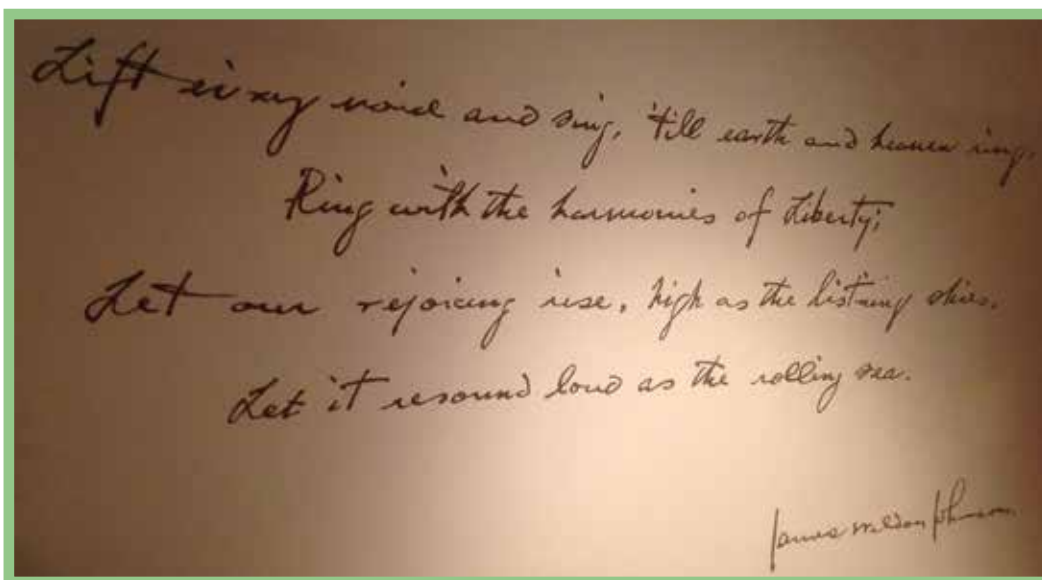 Lift ev'ry voice and sing, 'till earth and heaven ring,
Ring with the harmonies of Liberty;
Let our rejoicing rise, high as the list'ning skies.
Let it resound loud as the rolling sea.
James Weldon Johnson